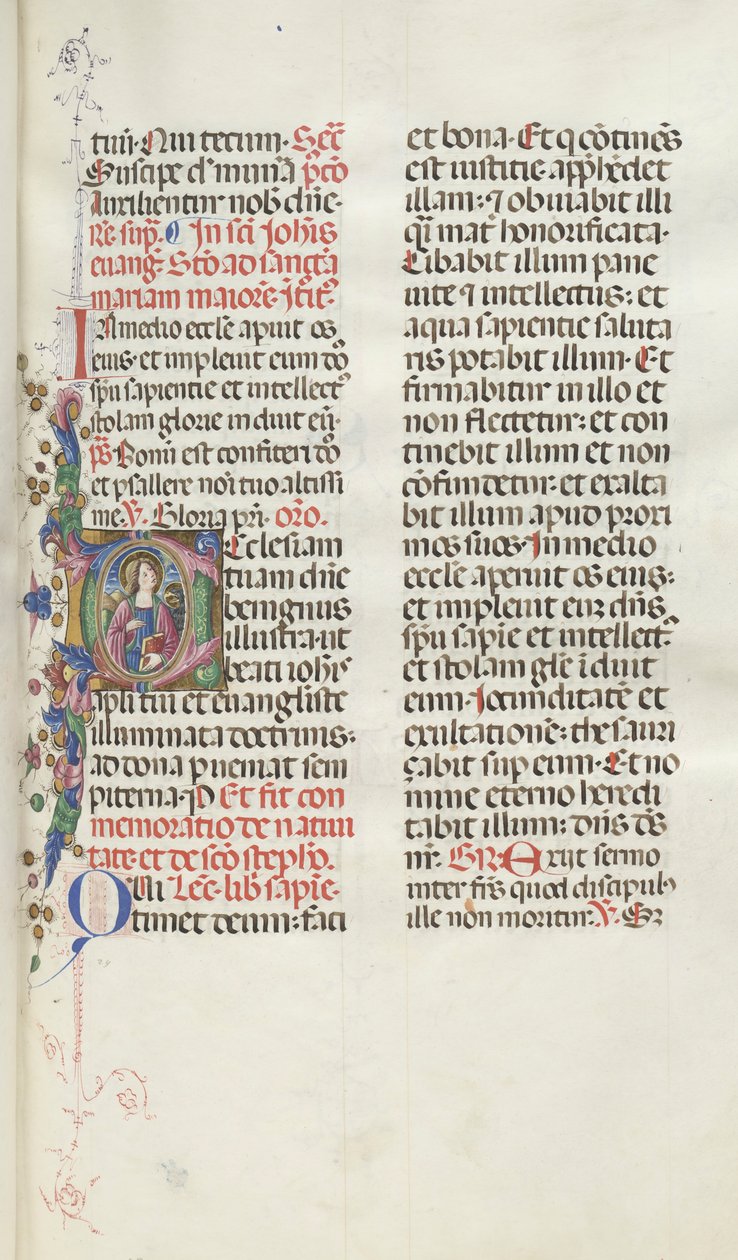 tuū. Nūi tecum. Sec̄
Suscipe dn̄e munera p̄cō
Auxilientur nob̄ dn̄e.
Rē. sup̄. In scī Johīs
euang̅. Stō ad sanctā
mariam maiorē. Jtīt̄.
In medio eccl̄e apuit os
eius. et impleuit eum dn̄s
sp̄u sapientie et intellect9
stolam glorie induit eū.
p̄s Bonū est confiteri dn̄o
et psallere noī tuo altissi
me. V̄. Gloria pri. or̄o.
Ecclesiam
tuam dn̄e
benignus
illustra. ut
beati ioh̄is
apl̄i tui et euangliste
illuminata doctrinis:
ad dona pueniat sem
piterna. P Et fit com
memoratio de natiui
tate. et de scō steph̄o.
Qui Lēc. lib̄ sapīe.
timet deum: faci
et bona. Et q cōtinēs
est iustitie. appħēdet
illam: ⁊ obuiabit illi
q̄i mat̄ honorificata.
Cibabit illum pane
uite ⁊ intellectus: et
aqua sapientie saluta
ris potabit illum. Et
firmabitur in illo et
non flectetur: et con
tinebit illum et non
cōfundetur. et exalta
bit illum apud proxi
mos suos. In medio
eccl̄e aperuit os eius:
et impleuit euȝ dn̄s
sp̄u sapīe et intellect9:
et stolam gl̄e īduit
eum. Jocunditatē et
exultationē: thesauri
çabit sup eum. Et no
mine eterno heredi
tabit illum: dn̄s d̄s
nr̄. GR̄. Exijt sermo
inter fr̄s quod discipul9
ille non moritur. V̄. S3